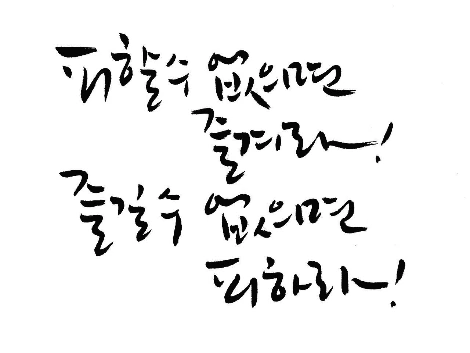 피할수 없으면
즐겨라!
즐길수 없으면
피하라!